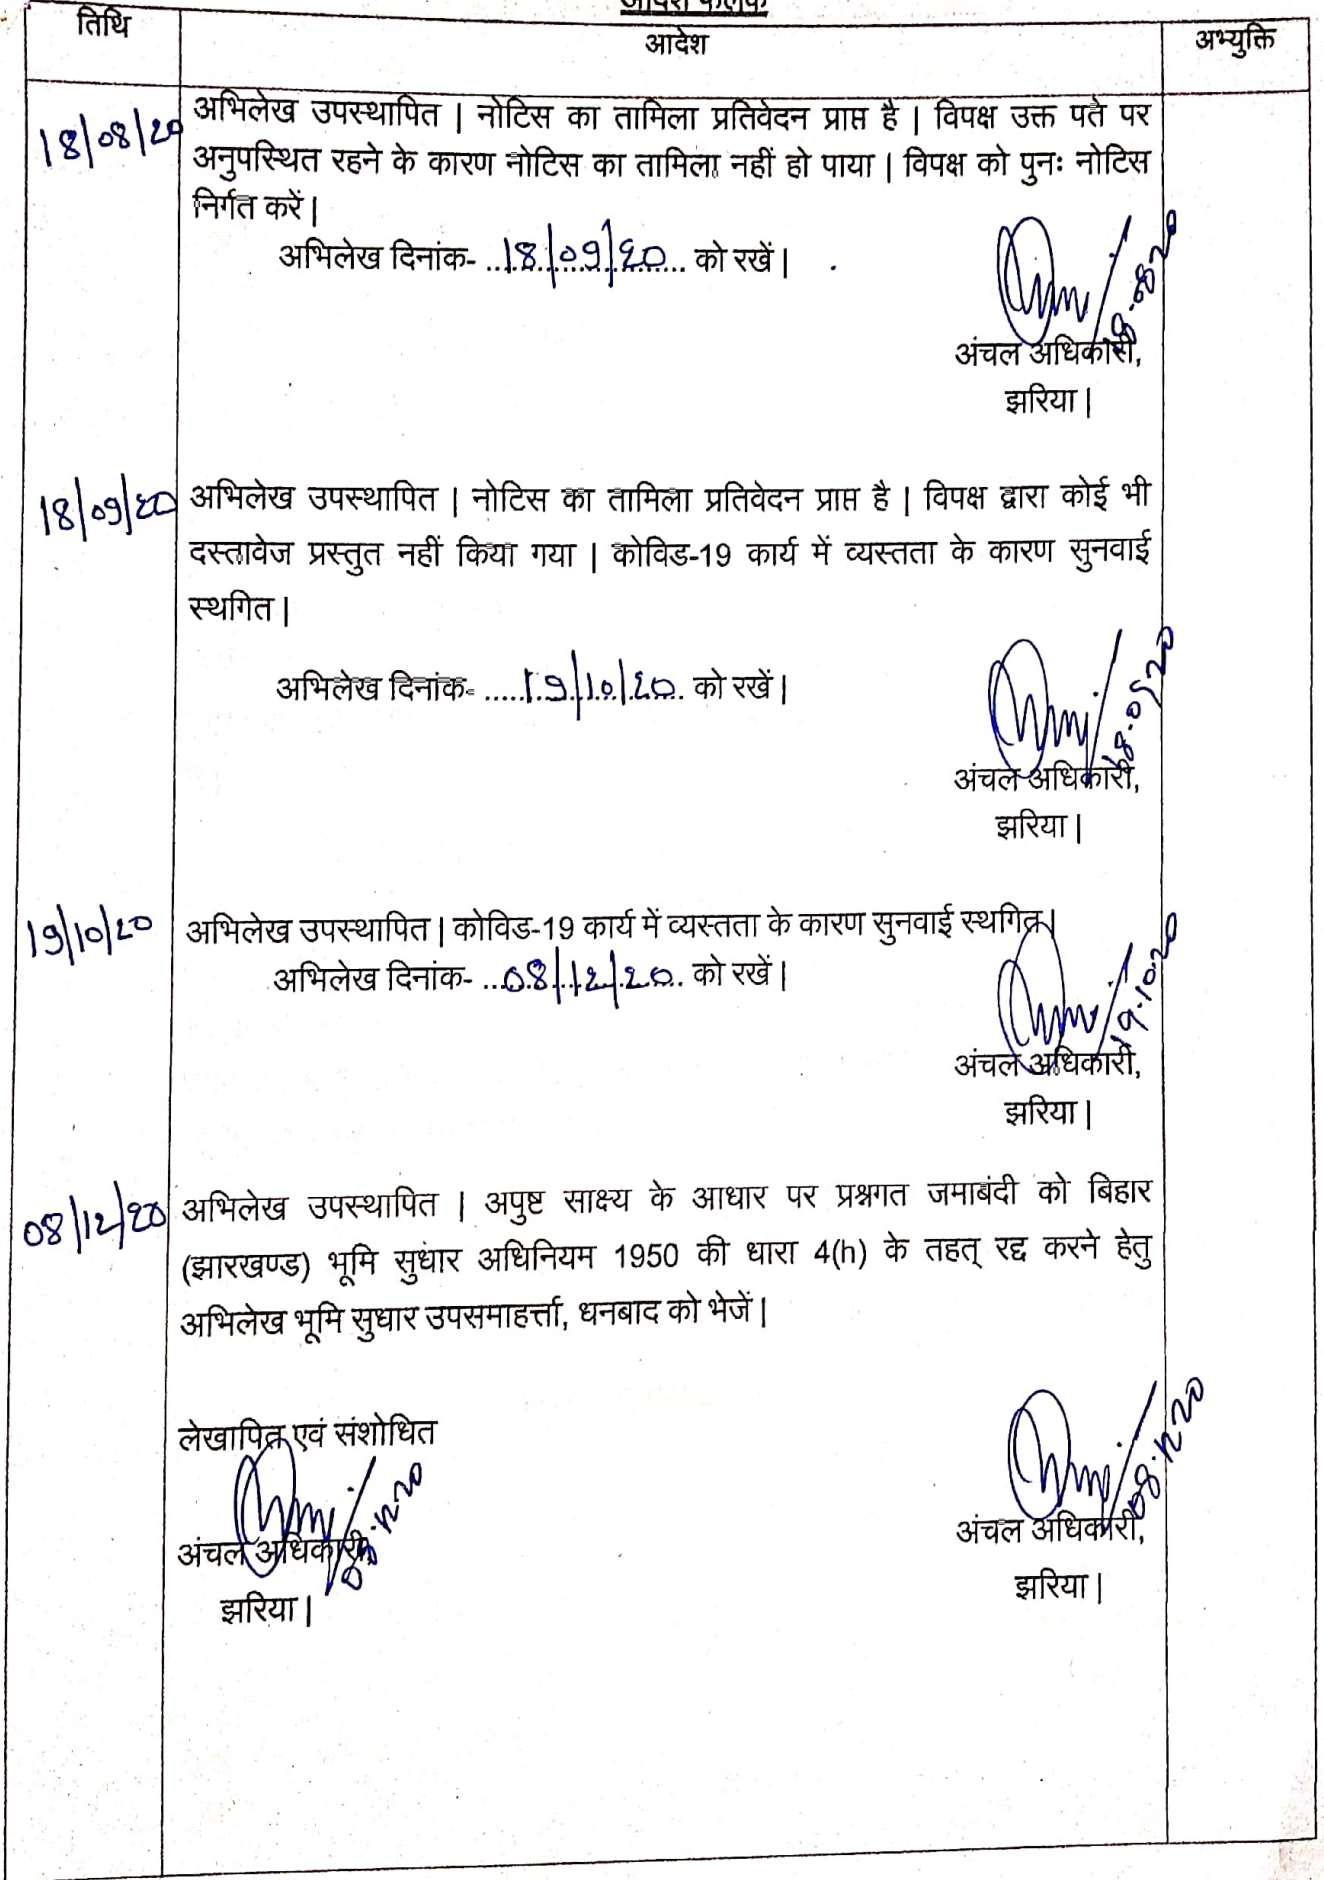 आदेश फलक
तिथि
आदेश
अभ्युक्ति
18/08/20
अभिलेख उपस्थापित | नोटिस का तामिला प्रतिवेदन प्राप्त है | विपक्ष उक्त पते पर
अनुपस्थित रहने के कारण नोटिस का तामिला नहीं हो पाया | विपक्ष को पुनः नोटिस
निर्गत करें |
अभिलेख दिनांक- ...18/09/20... को रखें |
18.08.20
अंचल अधिकारी,
झरिया |
18/09/20
अभिलेख उपस्थापित | नोटिस का तामिला प्रतिवेदन प्राप्त है | विपक्ष द्वारा कोई भी
दस्तावेज प्रस्तुत नहीं किया गया | कोविड-19 कार्य में व्यस्तता के कारण सुनवाई
स्थगित |
अभिलेख दिनांक- ......19/10/20.. को रखें |
18.09.20
अंचल अधिकारी,
झरिया |
19/10/20
अभिलेख उपस्थापित | कोविड-19 कार्य में व्यस्तता के कारण सुनवाई स्थगित |
अभिलेख दिनांक- ...08/12/20.. को रखें |
19.10.20
अंचल अधिकारी,
झरिया |
08/12/20
अभिलेख उपस्थापित | अपुष्ट साक्ष्य के आधार पर प्रश्नगत जमाबंदी को बिहार
(झारखण्ड) भूमि सुधार अधिनियम 1950 की धारा 4(h) के तहत् रद्द करने हेतु
अभिलेख भूमि सुधार उपसमाहर्त्ता, धनबाद को भेजें |
लेखापित एवं संशोधित
08.12.20
अंचल अधिकारी,
झरिया |
08.12.20
अंचल अधिकारी,
झरिया |